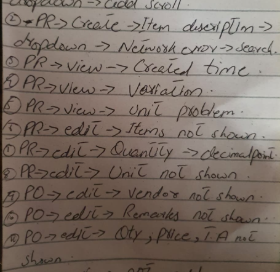 dropdown → Gidol Scroll.
② PR → Create → Item descriptin →
dropdown → Network error → search.
③ PR → view → Created time.
④ PR → view → Variation.
⑤ PR → view → Unit problem.
⑥ PR → edit → Items not shown.
⑦ PR → edit → Quantity → decimal point.
⑧ PR → edit → Unit not shown.
⑨ PO → edit → vendor not shown.
⑩ PO → edit → Remarks not shown.
⑪ PO → edit → Qty, price, TA not
shown.